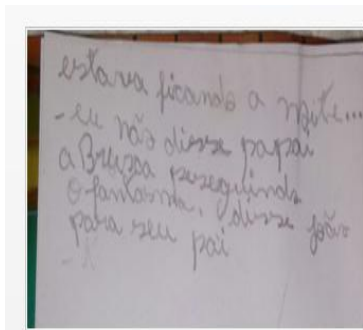 estava ficando a noite...
- eu não disse papai
a Bruxa peseguindo
o fantasma. disse João
para seu pai
-